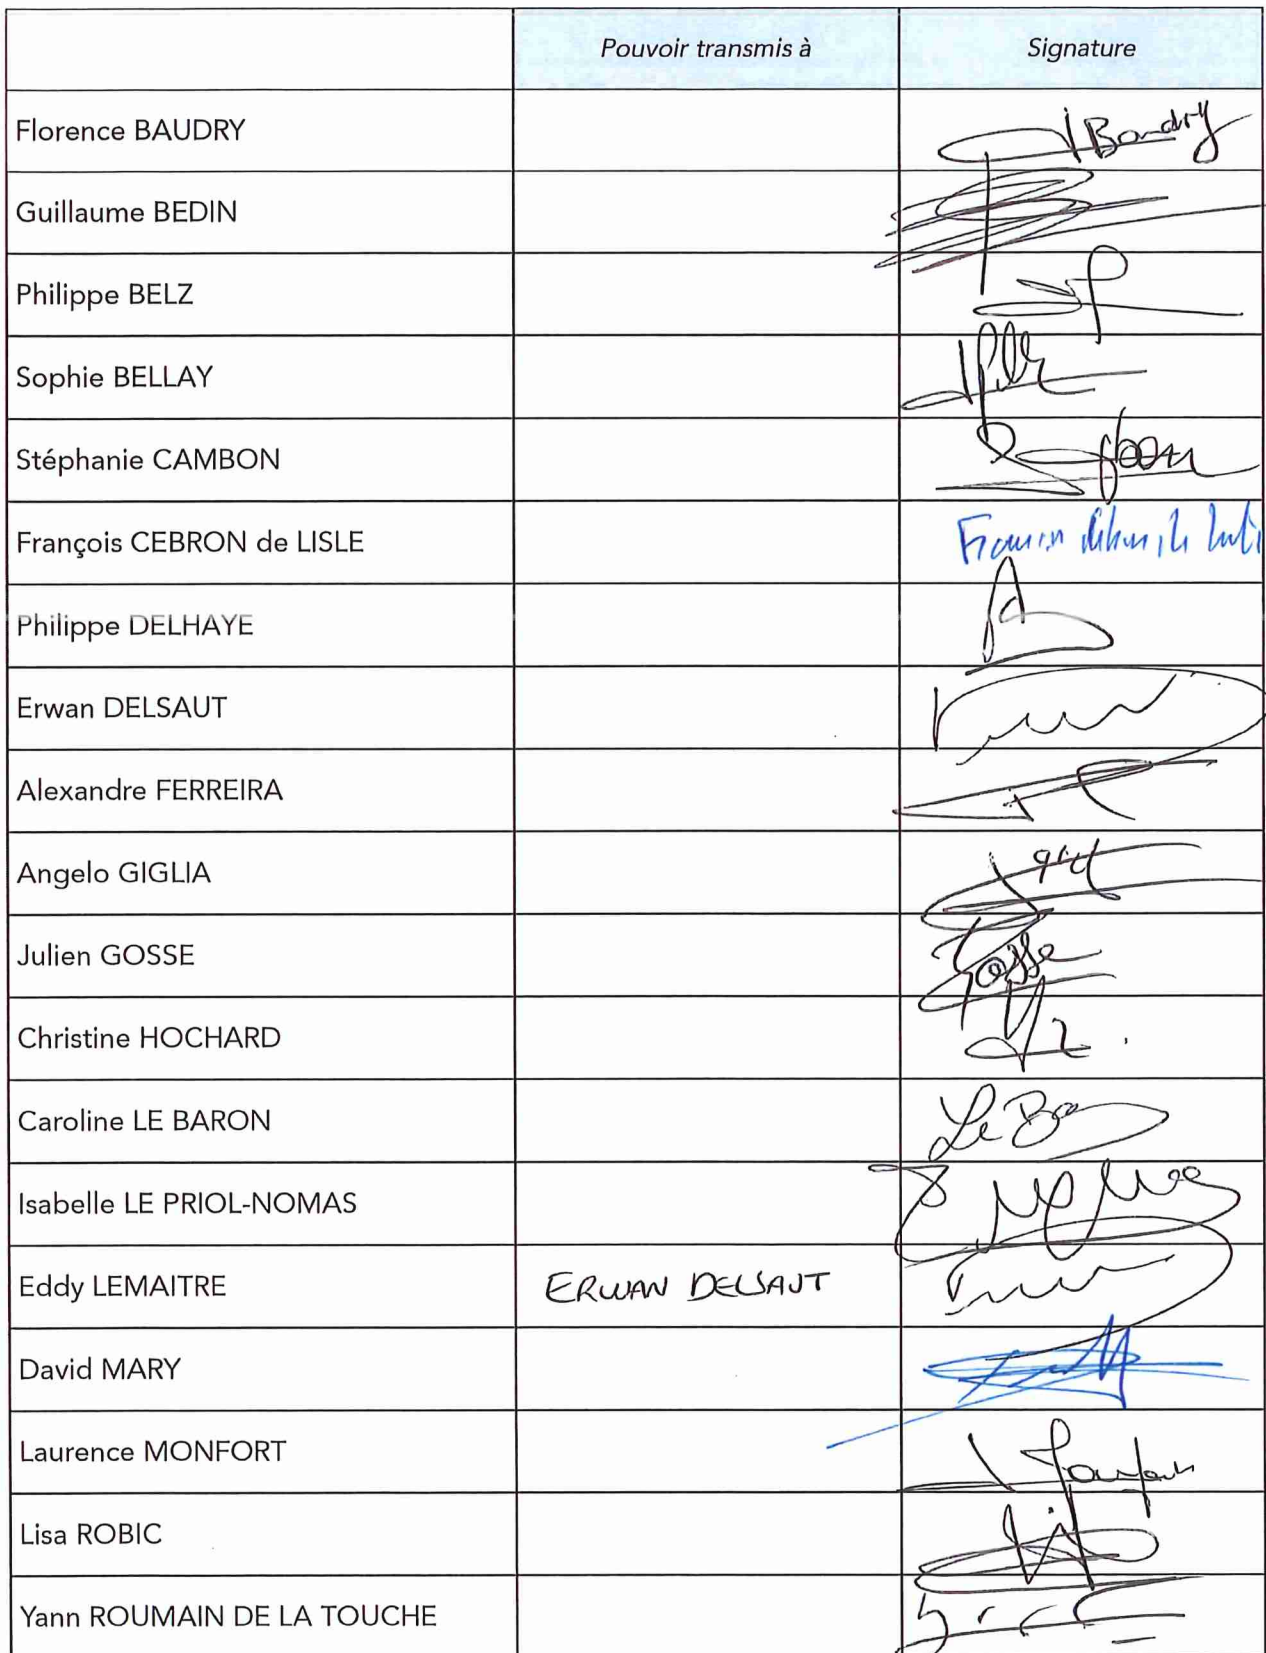 Pouvoir transmis à Signature
Florence BAUDRY Baudry
Guillaume BEDIN
Philippe BELZ
Sophie BELLAY
Stéphanie CAMBON
François CEBRON de LISLE
Philippe DELHAYE
Erwan DELSAUT
Alexandre FERREIRA
Angelo GIGLIA
Julien GOSSE Gosse
Christine HOCHARD
Caroline LE BARON
Isabelle LE PRIOL-NOMAS
Eddy LEMAITRE ERWAN DELSAUT
David MARY
Laurence MONFORT
Lisa ROBIC
Yann ROUMAIN DE LA TOUCHE